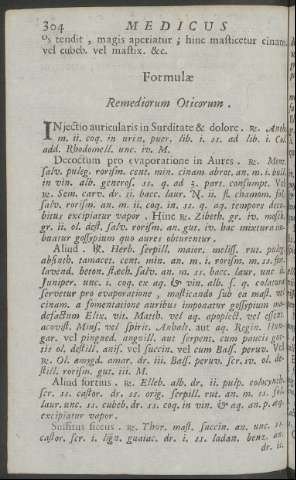 304 MEDICUS
os tendit, magis aperiatur; hinc masticetur cinam.
vel cubeb. vel mastix. &c.
Formulæ
Remediorum Oticorum.
INjectio auricularis in Surditate & dolore. ℞.
m. ii. coq. in urin. puer. lib. i. ss. ad lib. i. Col.
add. Rhodomell. unc. iv. M.
Decoctum pro evaporatione in Aures. ℞. Men.
salv. puleg. rorism. cent. min. cinam. abrot. an. m. i.
in vin. alb. generos. ss. q. ad 3. pars. consumpt. Vel
℞. Sem. carv. dr. ii. bacc. laur. N. ii. fl. chamom. fol.
salv. rorism. an. m. ii. coq. in. ss. q. aq. tempore decubitus
bitus excipiatur vapor. Hinc ℞. Zibeth. gr. iv. mosch.
gr. ii. ol. dest. salv. rorism. an. gut. iv. hac mixtura imbuatur
buatur gossypium quo aures obturentur.
Aliud. ℞. Herb. serpill. maior. meliss. rut. puleg.
absinth. tamarc. cent. min. an. m. i. rorism. m. ss. flor.
lavend. beton. stæch. salv. an. m. ss. bacc. laur. unc.
Juniper. unc. i. coq. ex aq. & vin alb. s. q. colatura
servetur pro evaporatione, masticando sub ea mast. vel
cinam. a fomentatione auribus imponatur gossypium
defactum Elix. vit. Matth. vel aq. apoplect. vel essent.
acoust. Mins. vel spirit. Anhalt. aut aq. Regin. Hungar.
gar. vel pingued. anguill. aut serpent. cum paucis guttis
tis ol. destill. anis. vel succin. vel cum Bals. peruv. Vel
℞. Ol. amygd. amar. dr. iii. Bals. peruv. scr. iv. ol. destill.
still. rorism. gut. iii. M.
Aliud fortius. ℞. Elleb. alb. dr. ii. pulp. colocynth.
scr. ss. castor. dr. ss. orig. serpill. rut. an. m. ss.
laur. unc. ss. cubeb. dr. ss. coq. in vin. & aq. an. p. æq.
excipiatur vapor.
Suffitus siccus. ℞. Thur. mast. succin. an. unc. ss.
castor. scr. i. lign. guaiac. dr. i. ss. ladan. benz. an.
dr. ii.